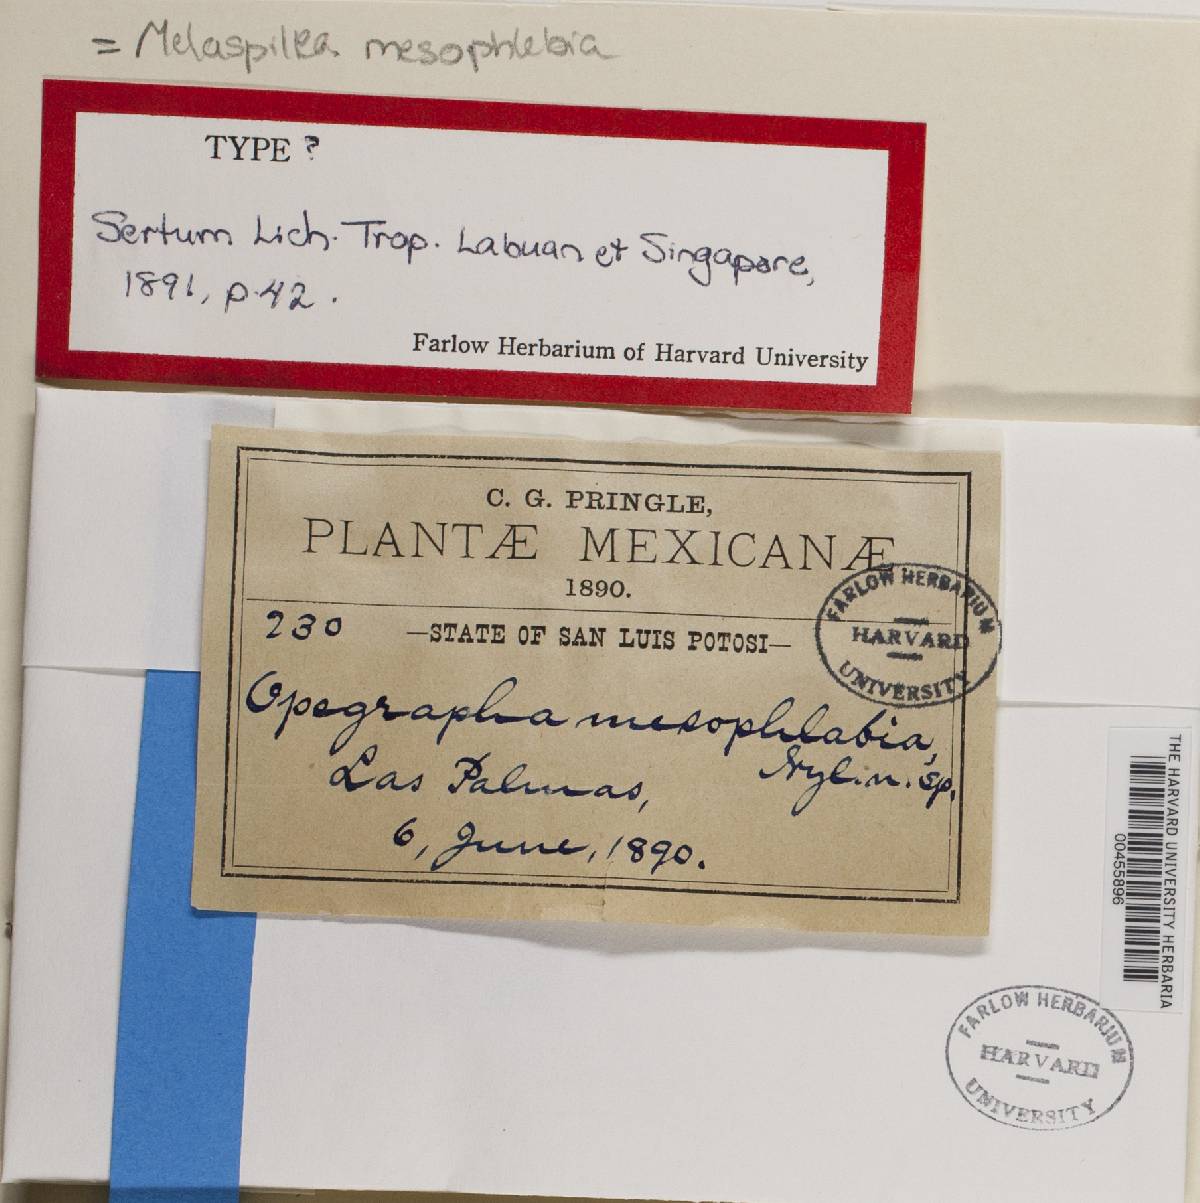 = Melaspilea mesophlebia
TYPE ?
Sertum Lich. Trop. Labuan et Singapore,
1891, p.42.
Farlow Herbarium of Harvard University
C. G. PRINGLE,
PLANTÆ MEXICANÆ
1890.
230 —STATE OF SAN LUIS POTOSI—
Opegrapha mesophlabia,
Nyl. n. sp.
Las Palmas,
6, June, 1890.
FARLOW HERBARIUM
HARVARD
UNIVERSITY
THE HARVARD UNIVERSITY HERBARIA
00455896
FARLOW HERBARIUM
HARVARD
UNIVERSITY